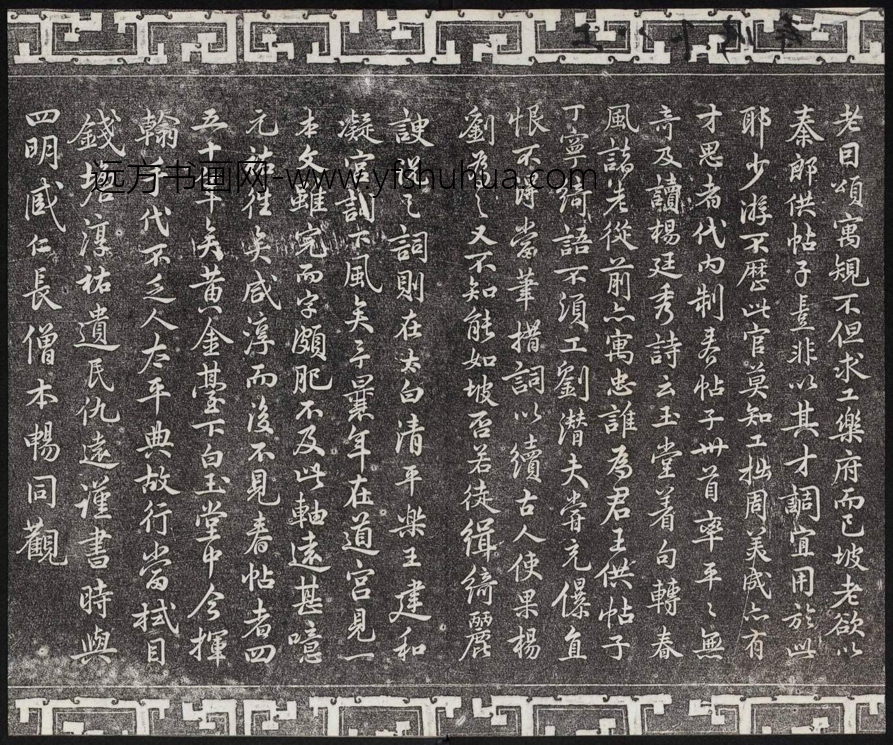 老目頌寓規不但求工樂府而已坡老欲以
秦郎供帖子豈非以其才調宜用於此
耶少游不歷此官莫知工拙周美成亦有
才思者代內制春帖子卅首率平〻無
奇及讀楊廷秀詩云玉堂著句轉春
風諸老從前亦寓忠誰為君王供帖子
丁寧綺語不須工劉潛夫嘗充儤直
恨不得當筆措詞以續古人使果楊
劉為之又不知能如坡否若徒緝綺麗
諛悅之詞則在太白清平樂王建和
凝宮詞下風矣予曩年在道宮見一
本文雖完而字頗肥不及此軸遠甚噫
元祐往矣咸淳而後不見春帖者四
五十年矣黃金臺下白玉堂中令揮
翰手代不乏人太平典故行當拭目
錢塘淳祐遺民仇遠謹書時與
四明戚仁長僧本暢同觀
远方书画网-www.yfshuhua.com